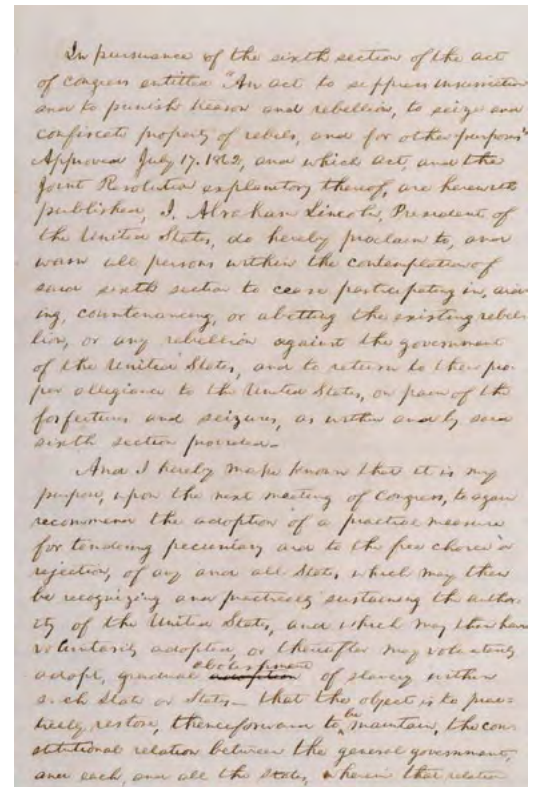 In pursuance of the sixth section of the act
of congress entitled "An act to suppress insurrection
and to punish treason and rebellion, to seize and
confiscate property of rebels, and for other purposes"
Approved July 17. 1862, and which act, and the
Joint Resolution explanatory thereof, are herewith
published, I, Abraham Lincoln, President of
the United States, do hereby proclaim to, and
warn all persons within the contemplation of
said sixth section to cease participating in, aid-
ing, countenancing, or abetting the existing rebel-
lion, or any rebellion against the government
of the United States, and to return to their pro-
per allegiance to the United States, on pain of the
forfeitures and seizures, as within and by said
sixth section provided—
And I hereby make known that it is my
purpose, upon the next meeting of Congress, to again
recommend the adoption of a practical measure
for tendering pecuniary aid to the free choice or
rejection, of any and all States, which may then
be recognizing and practically sustaining the author-
ity of the United States, and which may then have
voluntarily adopted, or thereafter may voluntarily
adopt, gradual adoption abolishment of slavery within
such State or States— that the object is to prac-
tically restore, thenceforward to be maintain, the con-
stitutional relation between the general government,
and each, and all the states, wherein that relation